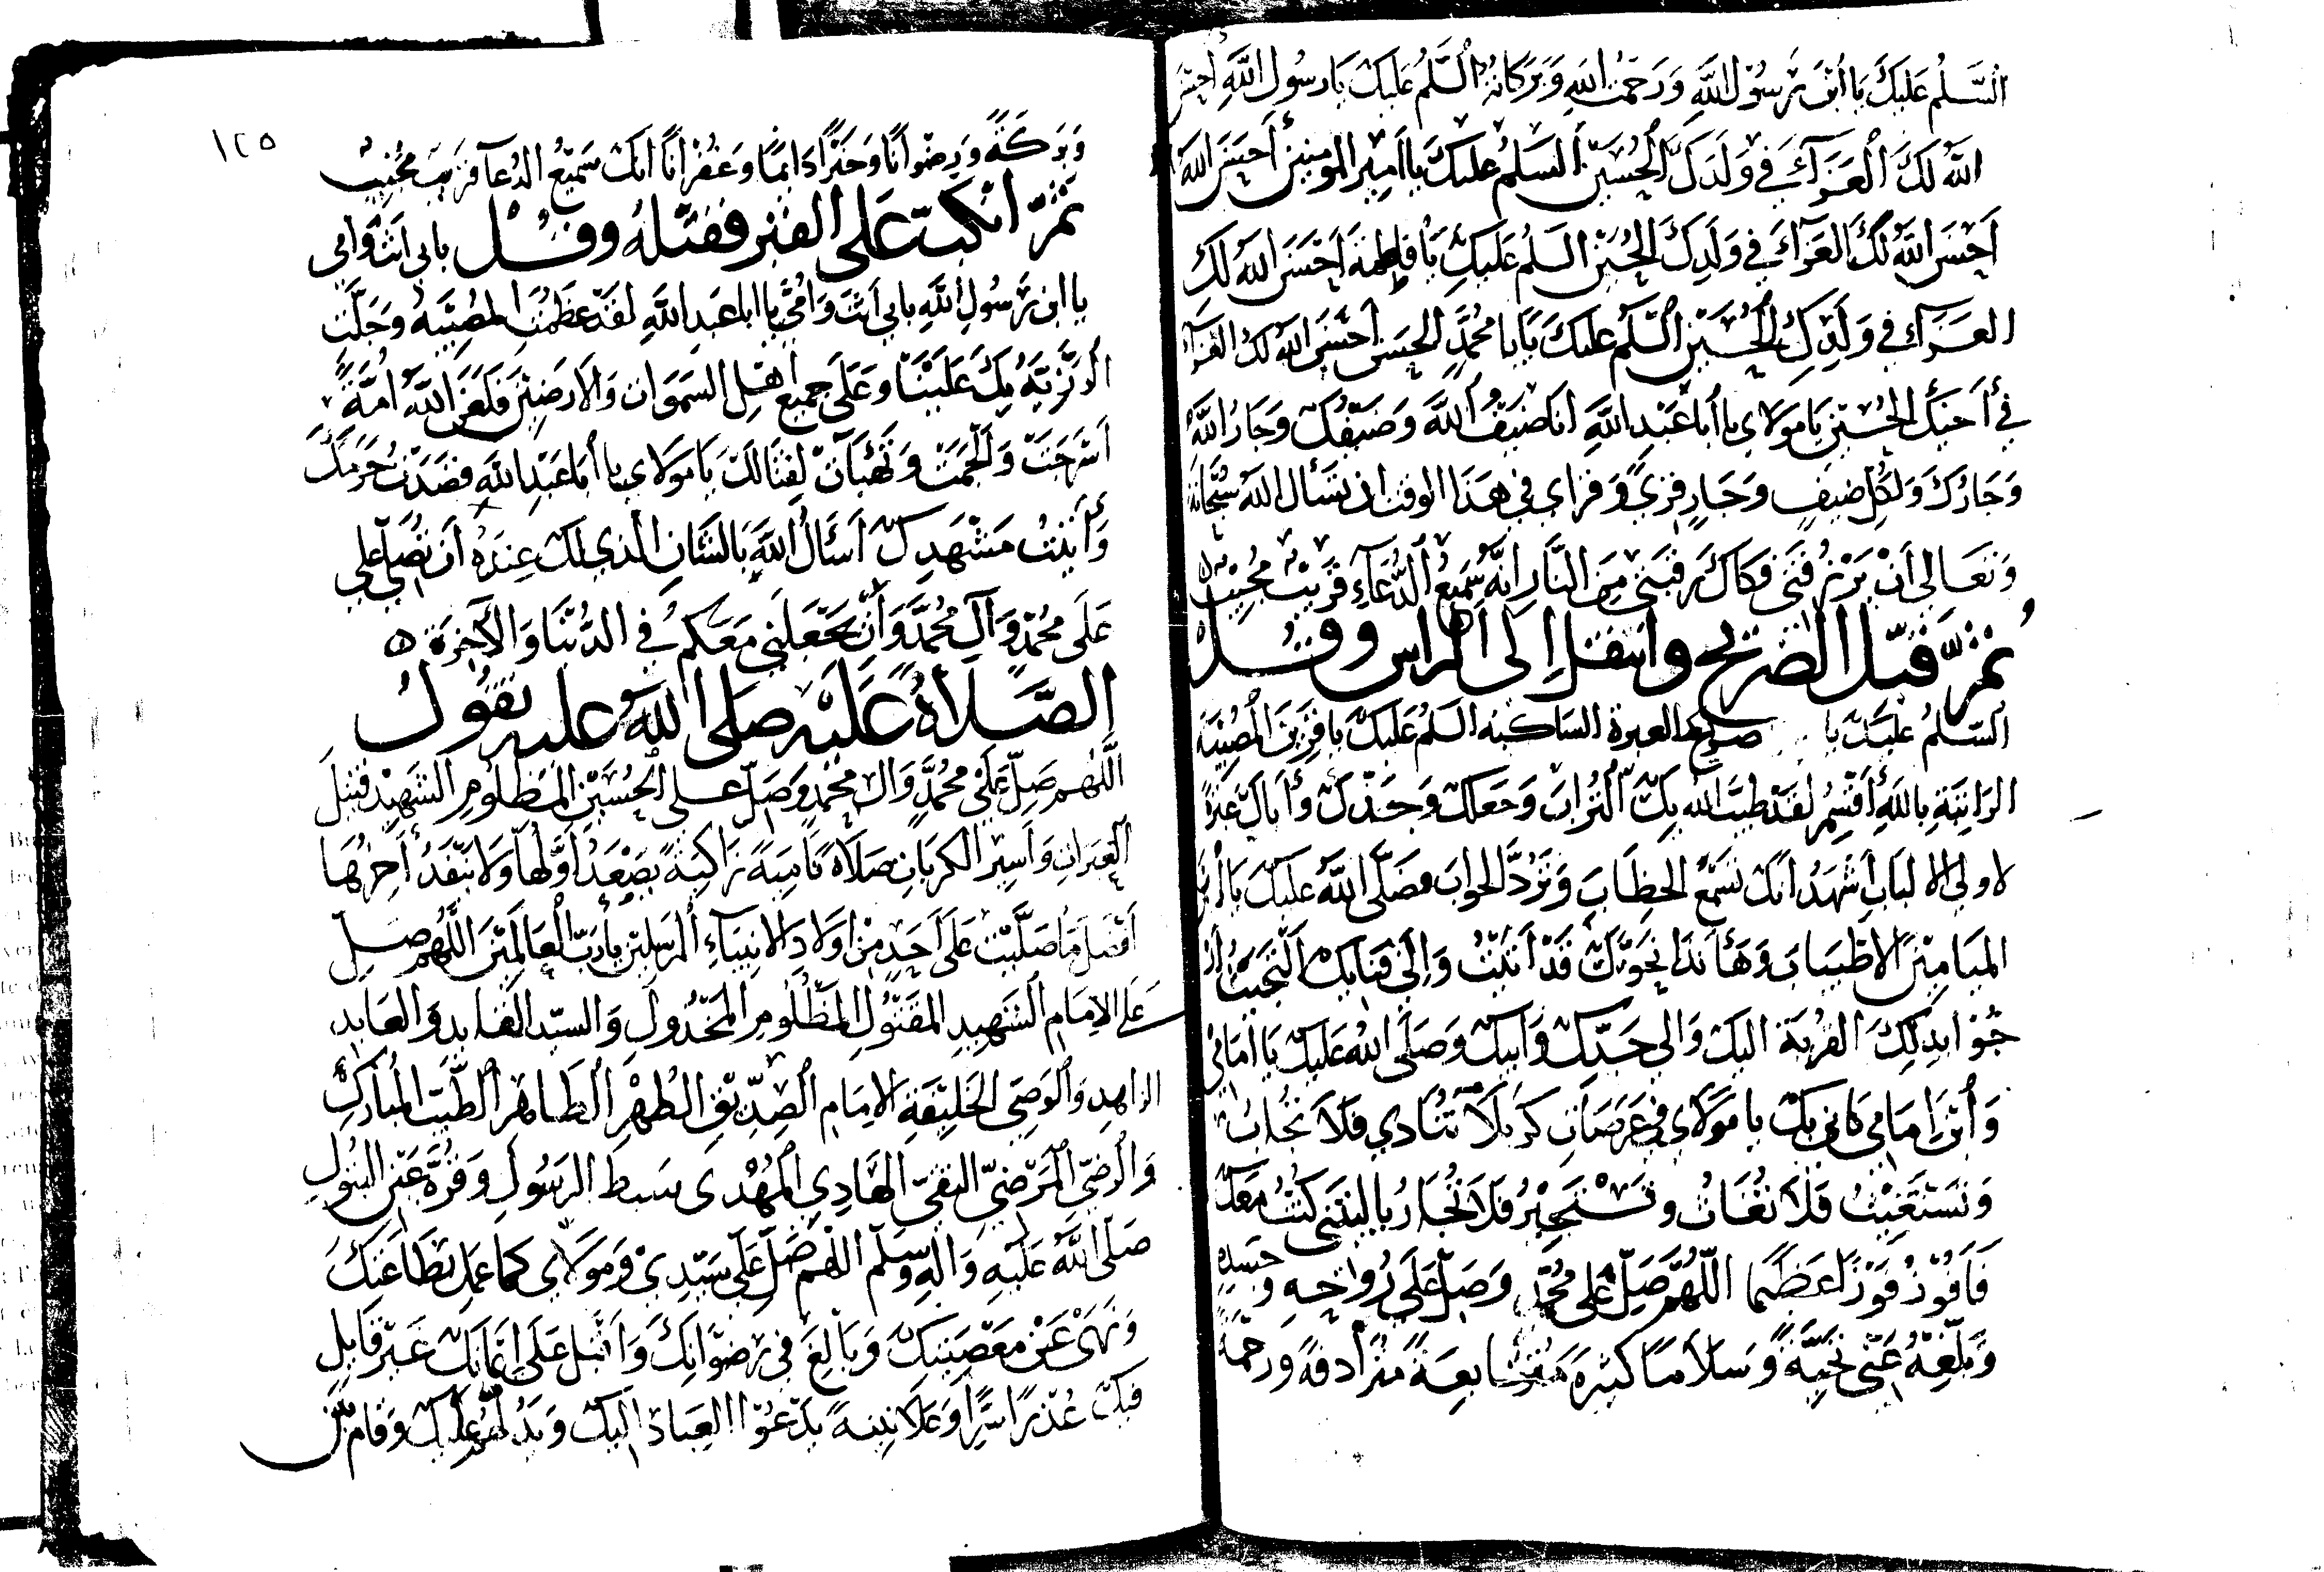 السَّلمُ عَلَيكَ يَا ابنَ رَسُولِ اللَّهِ وَرَحمَتُ اللهِ وَبَرَكَاتُهُ السَّلمُ عَلَيكَ يَا رسُولَ اللَّهِ احسَنَ
اللهُ لَكَ العَزَآءَ فِي وَلَدِكَ الحُسَين السَلمُ عليكَ يا امير المومنين أحسَنَ الله
أحسَنَ اللهُ لَكَ العَزَآءَ في وَلَدِكَ الحُسَين السَلمُ عَلَيكِ يَا فاطِمَة أَحسَنَ اللهُ لَكِ
العَزَآءَ في وَلَدِكِ الحُسَين السَّلمُ عليكَ يَا با محُمَّدٍ الحسَن أحسَنَ اللهُ لكَ العَزَآءَ
في أَخيكَ الحُسَين يَا مَولَاي يا أبا عَبدِ اللَّهِ انا ضَيفُ اللَّهِ وَضَيفُكَ وَجَارُ اللَّهِ
وَجَارُكَ وَلِكُلِّ ضيفٍ وَجَارٍ قِرىً وَقرَاي في هَذَا الوقت ان تسَأل اللهَ سُبحانَه
وَتعَالى أَنْ يَرزُقَني فكَاكَ رَقَبَتي مِنَ النَّار إنَّه سَمِيعُ الدُّعَآءِ قَريبٌ مُجِيبٌ ه
ثمَّ قَبّل الضريح وانتقل إلى الراس وقُل
السَّلمُ عليكَ يا صريع العبرة الساكبة السلمُ عَليكَ يا قَرينَ المُصيبَةِ
الرَاتِبَةِ بِاللهِ أُقسِمُ لقد طيَّب الله بِكَ التُّرابَ وجَعَلكَ وَجَدّكَ وأَبَاكَ عبَرَةً
لاولي الالبَابِ أشهَدُ أنّكَ تَسمَعُ الخِطَابَ وَتَرُدُّ الجوابَ فصَلَّى اللهُ عليكَ يَا ابنَ
الميَامِينَ الاطيَابِ وَهَأَنَذَا نحوَكَ قَدْ أَتَيْتُ وَإِلَى فِنَائِكَ التَجَيتُ أر
جُوا بِذلِكَ القُربَةَ إليكَ وَالى جَدّكَ وَأبيكَ وَصَلَى اللهُ عَليكَ يَا امَامي
وَابنَ امَامي كَاني بِكَ يا مَولَاي في عَرَصَاتِ كَربَلَا تُنَادي فَلَا تُجَابُ
وَتَستَغِيثُ فَلَا تُغَاثُ وتَسْتَجِيْرُ فَلَا تُجَارُ يا ليتَني كُنتُ مَعَكَ
فَأَفُوْزَ فَوْزًا عَظيمًا اللّهُمَّ صَلِّ عَلى محُمّدٍ وَصَلِّ عَلَى رُوحِهِ وجَسَدِهِ
وَبَلِّغهُ عَنّي تحَيَّةً وَسَلَامًا كثيرَةً متتابعةً مُترَادِفةً ورحمَةً
١٢٥
وَبَرَكَةً وَرِضوانًا وَخيرًا دَائمًا وَغفرانًا انك سَميْعُ الدُعَآ قَريبٌ مجُيبٌ
ثمَّ انكبّ عَلَى القبر فقَبّله وقُل بابي انتَ وَامّي
يا ابن رَسُولِ اللَّهِ بابي أنتَ وَامّي يا ابا عَبدِ اللَّهِ لقَد عَظُمَتِ المصُيبَة وَجَلَّت
الرّزيّة بِكَ عَلَينَا وعَلَى جميع أهل السَمَوَات وَالارَضينَ فَلَعَنَ اللَّهُ أمَّةً
أسْرَجَتْ وَأَلجمَتْ وَتَهيَّأتْ لِقتَالكَ يَا مَولَاي يا أبَا عَبدِ اللَّهِ قصَدتُ حَرَمَكَ
وَأتَيْتُ مَشْهَدكَ أسْئَالُ اللَّهَ بالشَّانِ الَّذي لكَ عِندَهُ أن تُصَلّي علي
عَلَى محُمّدٍ وَآلِ محُمَّدٍ وَأنْ تجَعَلني مَعَكُم في الدُّنيَا وَالآخِرَة ه
الصَّلَاةُ عَلَيْهِ صَلى اللهُ عليه تقول
اللَّهُمَّ صَلِّ عَلَى محُمَّدٍ وَال محمَدٍ وَصَلِّ علي الحُسَين المَظلُومِ الشَهِيد قتيلَ
العَبَراتِ وَأسِير الكربَاتِ صَلَاةً نَامِيَةً زَاكِيَةً يصَعَدُ أوَّلها وَلَا ينفَدُ أخِرُهَا
أفضَلَ مَا صَلَّيتَ عَلَى أحَدٍ مِنْ اولَادِ الانبياءِ المرسلين يا رَبّ العَالَمينَ اللَّهُمَّ صَلِ
عَلَى الإِمَام الشَّهِيدِ المقَتُولِ المَظلُومِ المَخْذُولِ وَالسيّد القايدِ وَالعَابِدِ
الزاهِدِ وَالوَصي الخَليفَةِ الإمَام الصِدّيقِ الطُهْرِ الطَاهر الطَّيّب المُبَارَكِ
وَالرَضيّ المَرْضِيّ التقيّ الهَادِي المَهْدى سبط الرسُولِ وَقُرَّة عَين البتُولِ
صَلَى اللهُ عَلَيهِ وَالهِ وسَلّم اللهُمَّ صَلِّ عَلَى سَيِّدِيْ وَمَولَاي كما عمِل بطَاعَتِكَ
وَنَهَى عَنْ مَعْصِيتِكَ وَبَالغَ في رضوَانِكَ وَاقبَل عَلَى إيمَانكَ غيرَ قَابلٍ
فيكَ عُذْرًا سِرًّا وَعَلَانيةً يَدْعُوْا العِبَادَ اليكَ وَيدُلهُم عَليكَ وَقَامَ بَين